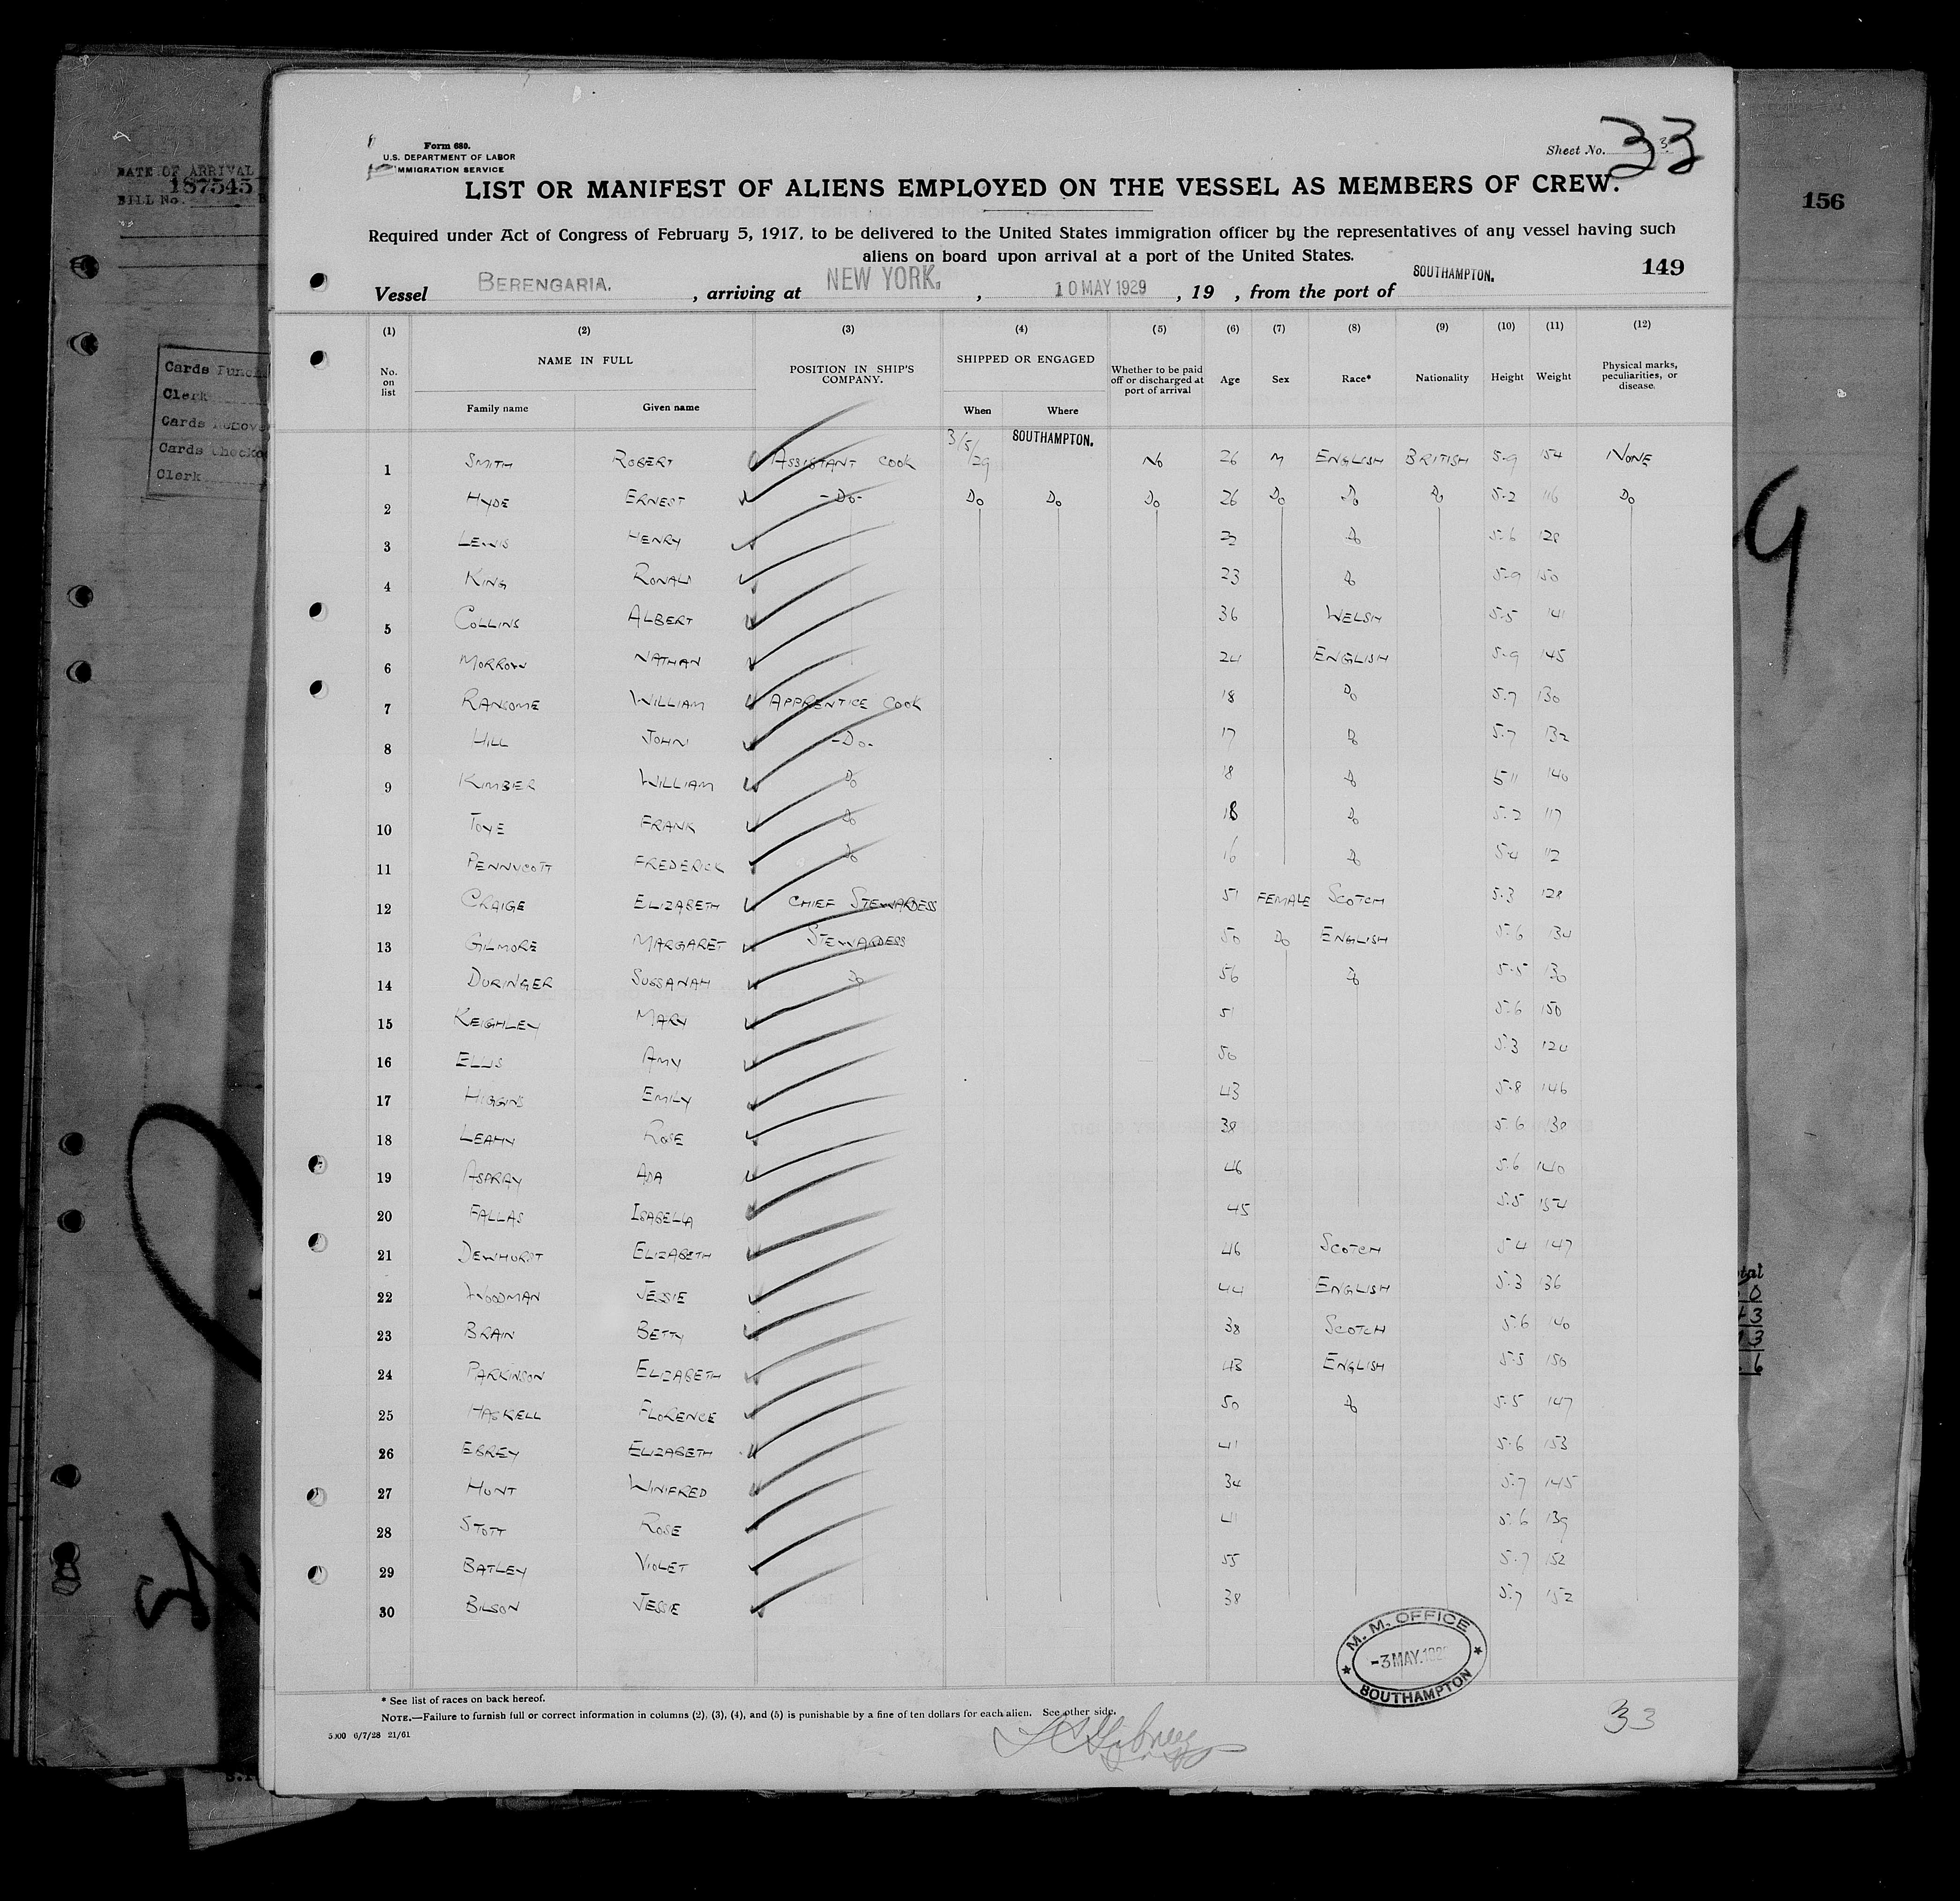 DATE OF ARRIVAL
187545
BILL No.
Cards Punch
Clerk
Cards Remove
Cards Checke
Clerk
156
Form 680.
U.S. DEPARTMENT OF LABOR
IMMIGRATION SERVICE
Sheet No. 33
LIST OR MANIFEST OF ALIENS EMPLOYED ON THE VESSEL AS MEMBERS OF CREW.
Required under Act of Congress of February 5, 1917, to be delivered to the United States immigration officer by the representatives of any vessel having such
aliens on board upon arrival at a port of the United States.
149
Vessel BERENGARIA. , arriving at NEW YORK. , 10 MAY 1929 , 19 , from the port of SOUTHAMPTON.
(1) (2) (3) (4) (5) (6) (7) (8) (9) (10) (11) (12)
No. on list NAME IN FULL POSITION IN SHIP'S COMPANY. SHIPPED OR ENGAGED Whether to be paid off or discharged at port of arrival Age Sex Race* Nationality Height Weight Physical marks, peculiarities, or disease.
Family name Given name When Where
1 SMITH ROBERT ASSISTANT COOK 3/5/29 SOUTHAMPTON. NO 26 M ENGLISH BRITISH 5-9 154 NONE
2 HYDE ERNEST -DO- DO DO DO 26 DO DO DO 5-2 116 DO
3 LEWIS HENRY DO 5-6 128
4 KING RONALD 23 DO 5-9 150
5 COLLINS ALBERT 36 WELSH 5-5 141
6 MORROW NATHAN 24 ENGLISH 5-9 145
7 RANSOME WILLIAM APPRENTICE COOK 18 DO 5-7 130
8 HILL JOHN -DO- 17 DO 5-7 132
9 KIMBER WILLIAM DO 18 DO 5-11 140
10 TOYE FRANK DO 18 DO 5-2 117
11 PENNYCOTT FREDERICK DO 16 DO 5-4 112
12 CRAIGE ELIZABETH CHIEF STEWARDESS 51 FEMALE SCOTCH 5-3 128
13 GILMORE MARGARET STEWARDESS 50 DO ENGLISH 5-6 134
14 DURINGER SUSSANAH DO 56 DO 5-5 130
15 KEIGHLEY MARY 51 5-6 150
16 ELLIS AMY 50 5-3 120
17 HIGGINS EMILY 43 5-8 146
18 LEAHY ROSE 38 5-6 138
19 ASPRAY ADA 46 5-6 140
20 FALLAS ISABELLA 45 5-5 154
21 DEWHURST ELIZABETH 46 SCOTCH 5-4 147
22 WOODMAN JESSIE 44 ENGLISH 5-3 136
23 BRAIN BETTY 38 SCOTCH 5-6 140
24 PARKINSON ELIZABETH 43 ENGLISH 5-5 150
25 HASKELL FLORENCE 50 DO 5-5 147
26 EBREY ELIZABETH 41 5-6 153
27 HUNT WINIFRED 34 5-7 145
28 STOTT ROSE 41 5-6 139
29 BATLEY VIOLET 55 5-7 152
30 BILSON JESSIE 38 5-7 152
M. M. OFFICE
-3 MAY. 1929
SOUTHAMPTON
* See list of races on back hereof.
NOTE.—Failure to furnish full or correct information in columns (2), (3), (4), and (5) is punishable by a fine of ten dollars for each alien. See other side.
5000 6/7/28 21/61
33